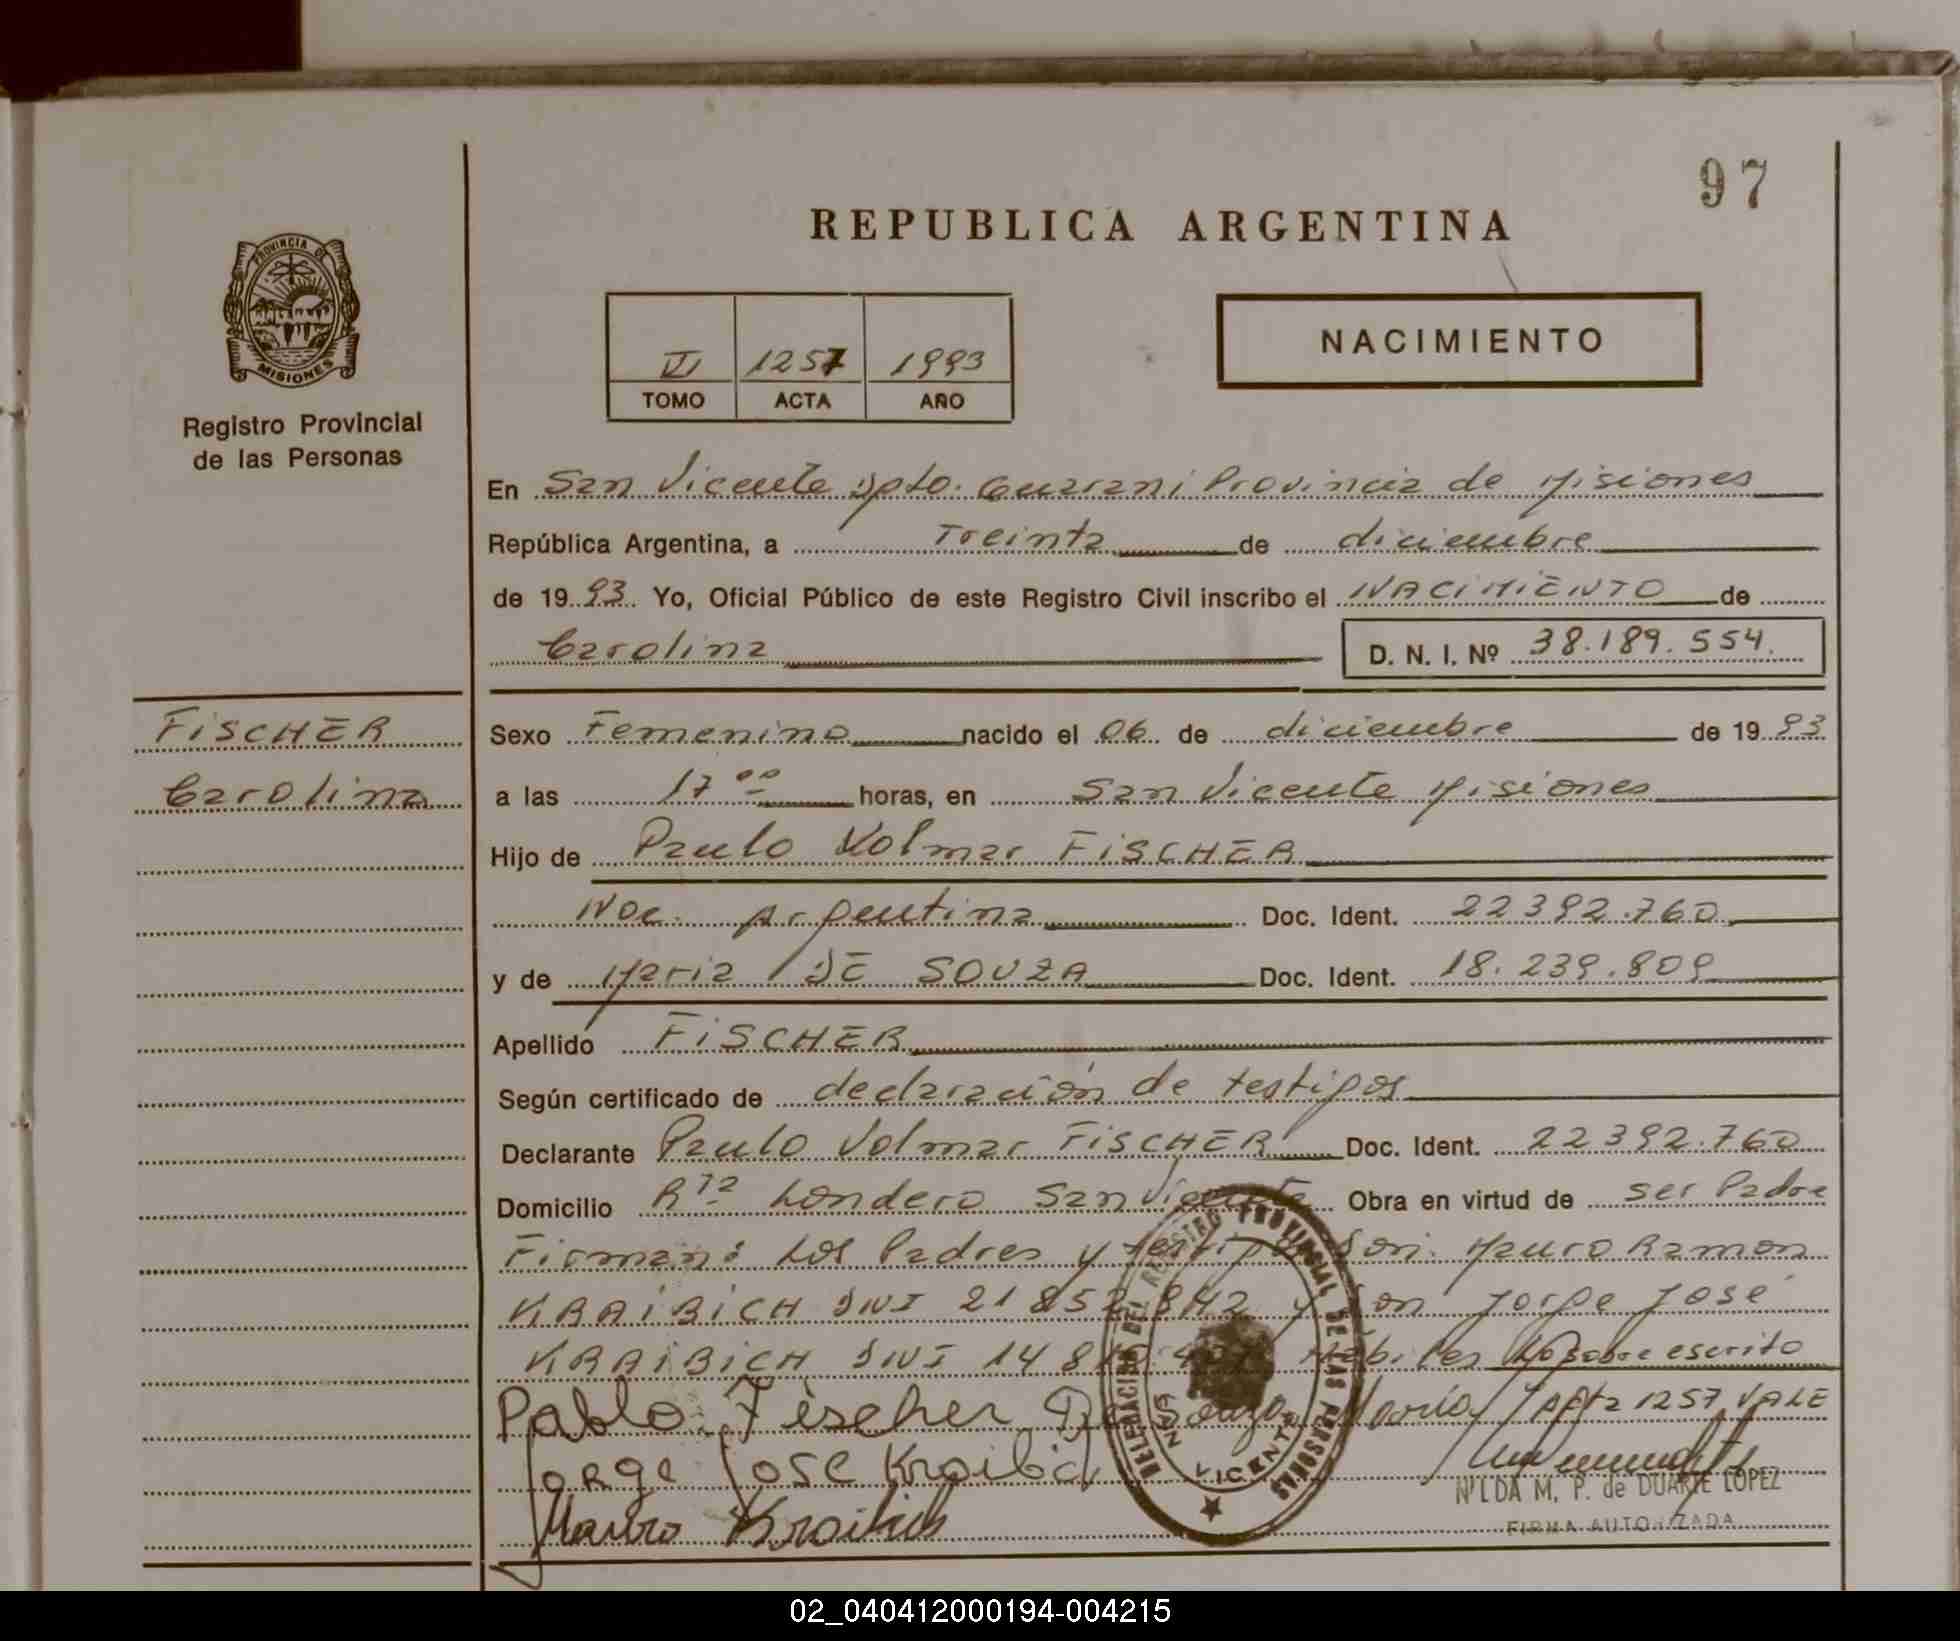 97
REPUBLICA ARGENTINA
PROVINCIA DE
MISIONES
Registro Provincial
de las Personas
VI 1257 1993
TOMO ACTA AÑO
NACIMIENTO
En San Vicente Dpto. Guarani Provincia de Misiones
República Argentina, a Treinta de diciembre
de 1993 Yo, Oficial Público de este Registro Civil inscribo el NACIMIENTO de
Carolina D. N. I. Nº 38.189.554.
FISCHER
Carolina
Sexo Femenino nacido el 06 de diciembre de 1993
a las 17 00 horas, en San Vicente Misiones
Hijo de Paulo Volmar FISCHER
Nac. Argentina Doc. Ident. 22392.760
y de Maria DE SOUZA Doc. Ident. 18.239.809
Apellido FISCHER
Según certificado de declaración de testigos
Declarante Paulo Volmar FISCHER Doc. Ident. 22392.760
Domicilio Rta Londero San Vicente Obra en virtud de ser Padre
Firman: Los Padres y testigos Son: Mauro Ramon
KRAIBICH DNI 21852.842 y Don Jorge José
KRAIBICH DNI 14 Hábiles Lo sobre escrito
Pablo Fischer De Souza María Acta 1257 VALE
Jorge Jose Kraibich
Mauro Kraibich
DELEGACION DEL REGISTRO PROVINCIAL DE LAS PERSONAS
SAN VICENTE
NILDA M. P. de DUARTE LOPEZ
FIRMA AUTORIZADA
02_040412000194-004215